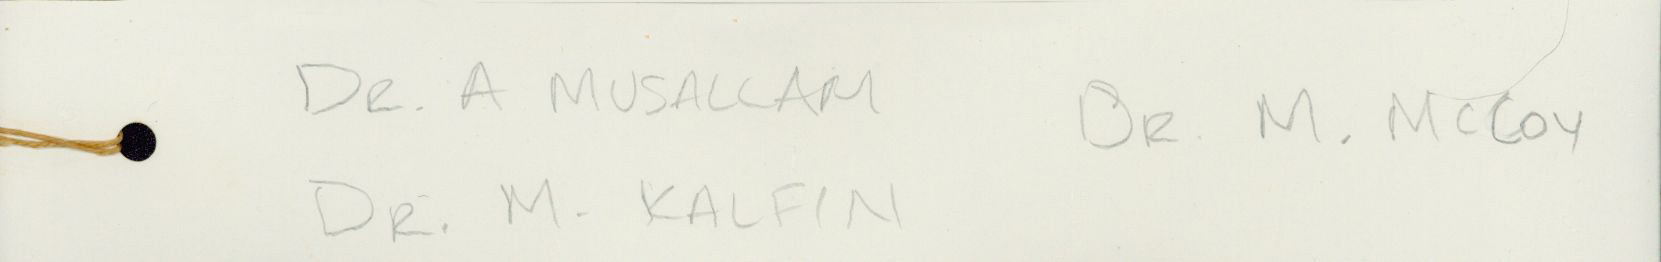 DR. A MUSALLAM
DR. M. KALFIN
DR. M. McCOY